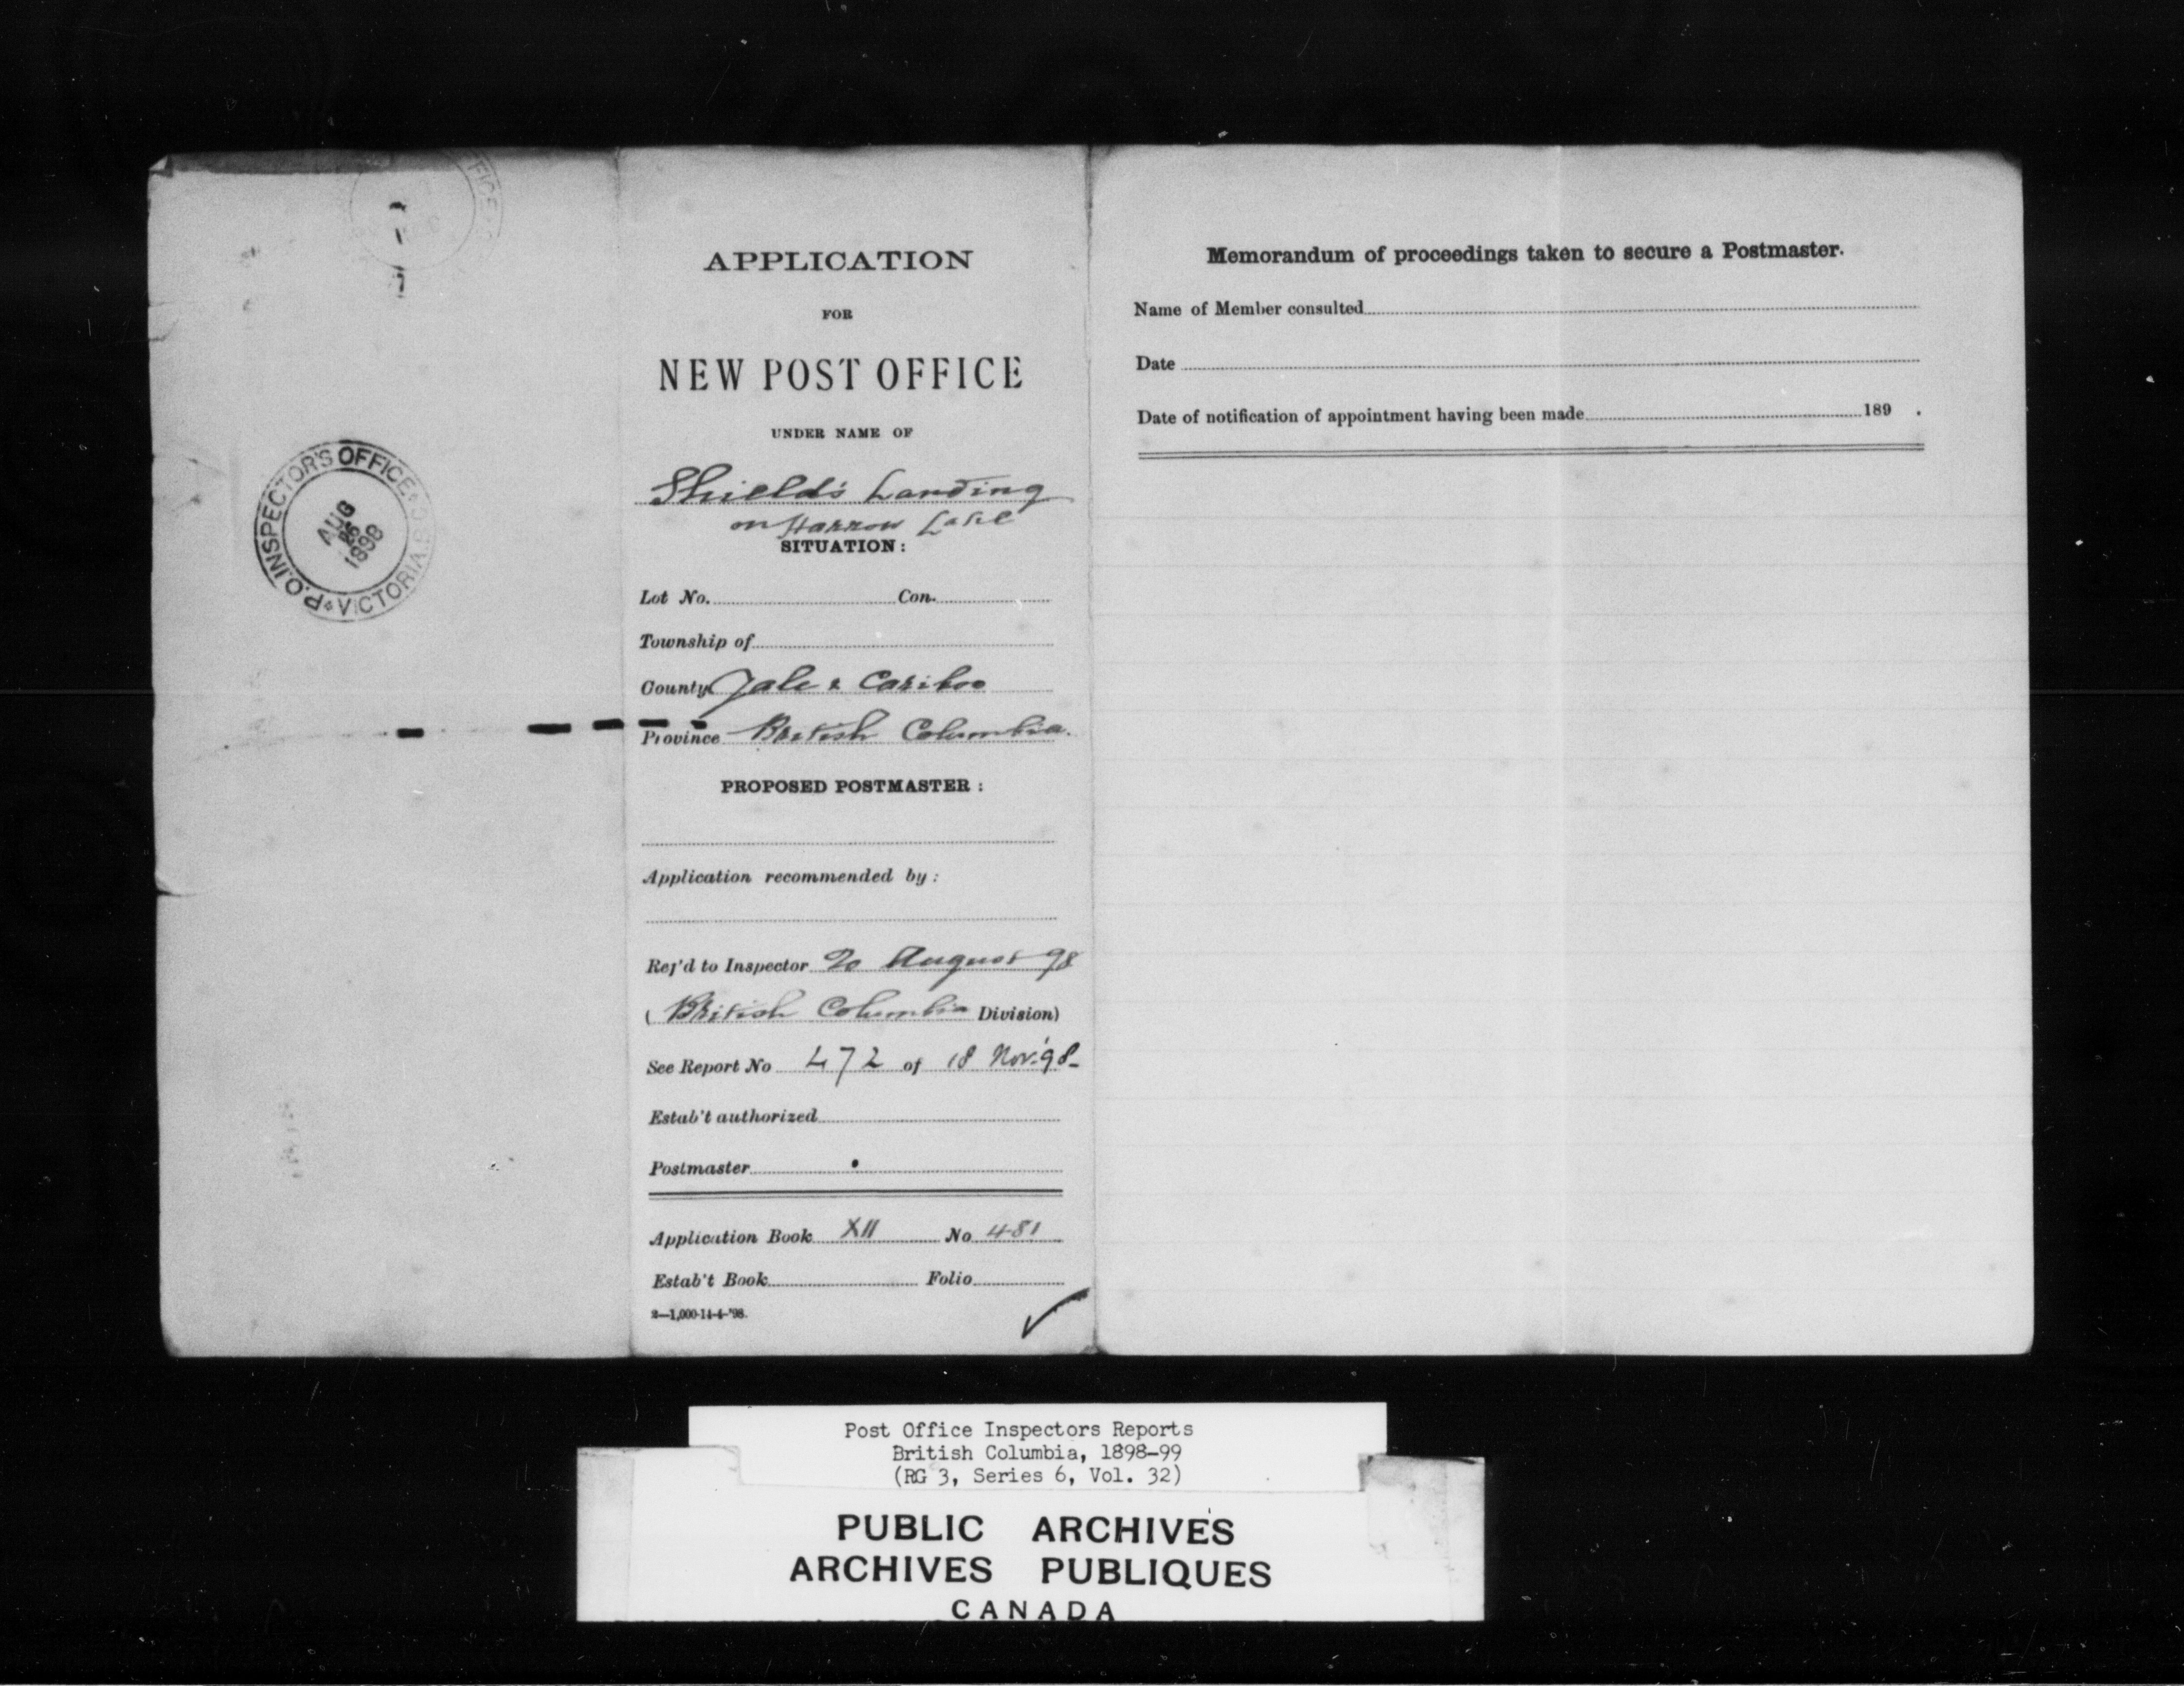 APPLICATION
FOR
NEW POST OFFICE
UNDER NAME OF
Shield's Landing
on Harrow Lake
SITUATION:
Lot No. Con.
Township of
County Yale & Cariboo
Province British Columbia.
PROPOSED POSTMASTER:
Application recommended by:
Ref'd to Inspector 20 August 98
(British Columbia Division)
See Report No 472 of 18 Nov. '98-
Estab't authorized
Postmaster
Application Book XII No 481
Estab't Book Folio
2—1,000-14-4-'98.
P.O. INSPECTOR'S OFFICE
VICTORIA, B.
AUG
26
1898
Memorandum of proceedings taken to secure a Postmaster.
Name of Member consulted
Date
Date of notification of appointment having been made 189 .
Post Office Inspectors Reports
British Columbia, 1898-99
(RG 3, Series 6, Vol. 32)
PUBLIC ARCHIVES
ARCHIVES PUBLIQUES
CANADA